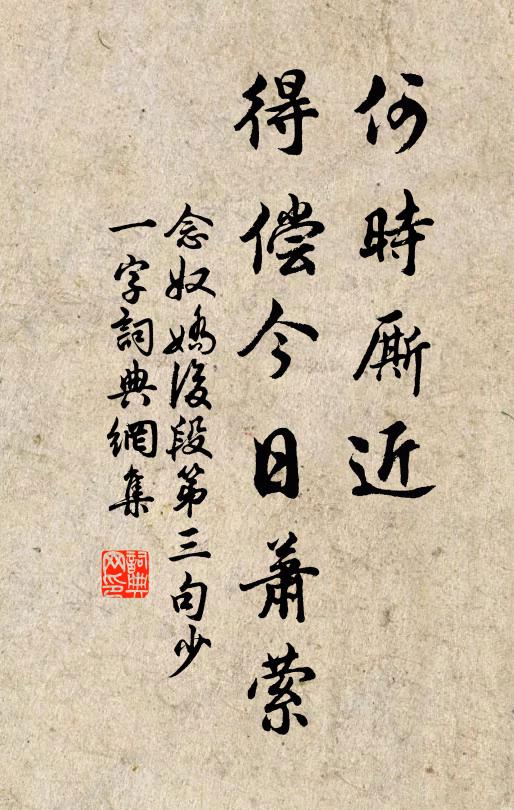 何時厮近
得偿今日蕭萦
念奴嬌後段第三句少
一字詞典網集
詞典網印